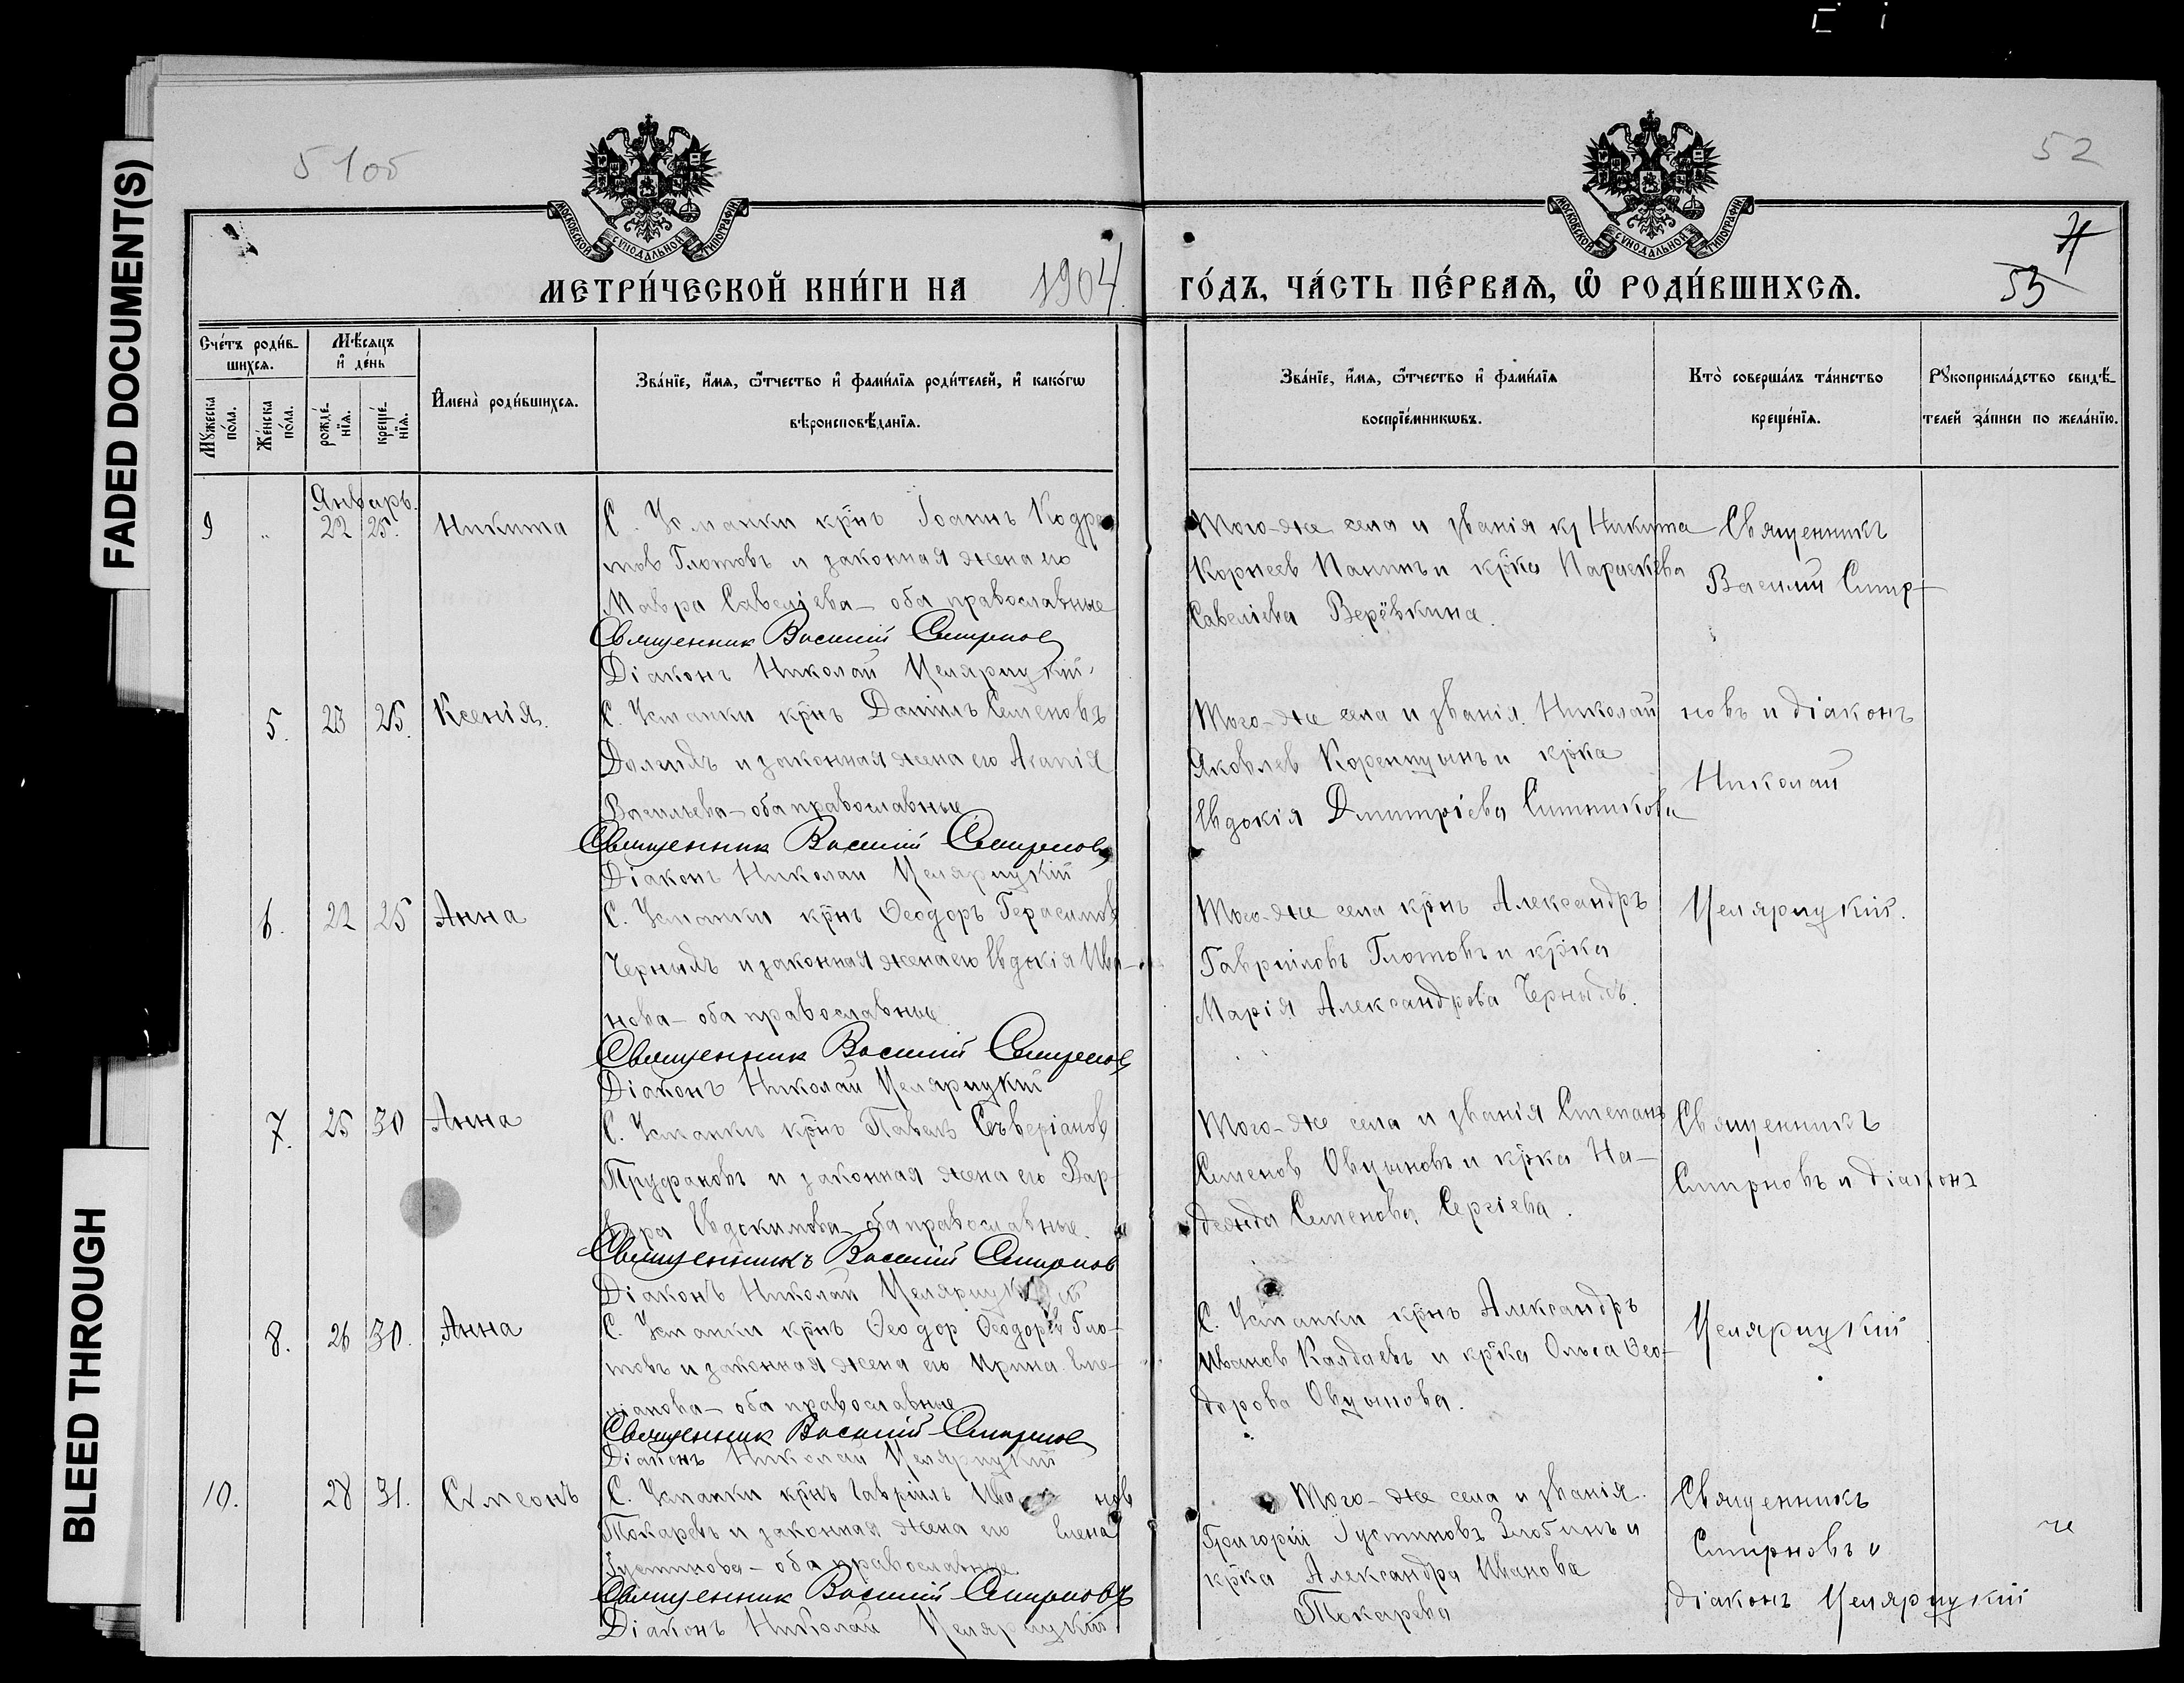 FADED DOCUMENT(S)
BLEED THROUGH
51об
52
53
МОСКОВСКОЙ СѴНОДАЛЬНОЙ ТИПОГРАФІИ
МОСКОВСКОЙ СѴНОДАЛЬНОЙ ТИПОГРАФІИ
МЕТРИ́ЧЕСКОЙ КНИ́ГИ НА 1904 ГО́ДЪ, ЧА́СТЬ ПЕ́РВАѦ, Ѡ҆ РОДИ́ВШИХСѦ.
Сче́тъ роди́в-
шихсѧ.
Мѣ́сѧцъ
и҆ де́нь
Мꙋ́жеска
по́ла.
Же́нска
по́ла.
рожде́-
нїѧ.
креще́-
нїѧ.
И҆мена̀ роди́вшихсѧ.
Зва́нїе, и҆́мѧ, ѻ҆́тчество и҆ фами́лїѧ роди́телей, и҆ како́гѡ
вѣроисповѣ́данїѧ.
Зва́нїе, и҆́мѧ, ѻ҆́тчество и҆ фами́лїѧ
воспрїе́мникѡвъ.
Кто̀ соверша́лъ та́инство
креще́нїѧ.
Рꙋкоприкла́дство свидѣ́-
телей за́писи по жела́нїю.
Январь.
9 " 22 25. Никита
С. Усманки крнъ Іоаннъ Кодра
тов Глотовъ и законная жена его
Мавра Савеліева – оба православные
Священник Василій Смирнов
Діаконъ Николай Целярицкій.
Того-же села и званія кр Никита
Корнеев Панинъ и крка Параскева
Савеліева Верёвкина.
Священникъ
Василій Смир-
5. 23 25. Ксенія.
С. Усманки крнъ Даніилъ Семеновъ
Долгихъ и законная жена его Агапія
Васильева – оба православные
Священник Василій Смирновъ
Діаконъ Николай Целярицкій
Того-же села и званія. Николай
Яковлев Коренщинъ и крка
Евдокія Дмитріева Ситникова
новъ и діаконъ
Николай
6. 22 25 Анна
С. Усманки крнъ Ѳеодоръ Герасимов
Черныхъ и законная жена его Евдокія Ива-
нова – оба православные
Священник Василій Смирнов
Діаконъ Николай Целярицкій
Того-же села крнъ Александръ
Гавриловъ Глотовъ и крка
Марія Александрова Черныхъ.
Целярицкій.
7. 25 30 Анна
С. Усманки крнъ Павелъ Севѣріанов
Труфановъ и законная жена его Вар-
вара Евдокимова – оба православные.
Священникъ Василій Смирнов
Діаконъ Николай Целярицкій
Того-же села и званія Степанъ
Семенов Овцыновъ и крка На-
дежда Семенова Сергіева.
Священникъ
Смирновъ и діаконъ
8. 26 30. Анна
С. Усманки крнъ Ѳеодор Ѳеодоров Гло-
товъ и законная жена его Ирина Еме-
ліанова – оба православные
Священник Василій Смирнов
Діаконъ Николай Целярицкій
С. Усманки крнъ Александръ
Иванов Калдаевъ и крка Ольга Ѳео-
дорова Овцынова.
Целярицкій
10. 28 31. Сѵмеонъ
С. Усманки крнъ Гавріилъ Ива нов
Токаревъ и законная жена его Елена
Іустинова – оба православные
Священник Василій Смирновъ
Діаконъ Николай Целярицкій
Того-же села и званія.
Григорій Іустиновъ Злобинъ и
крка Александра Иванова
Токарева
Священникъ
Смирновъ и
діаконъ Целярицкій